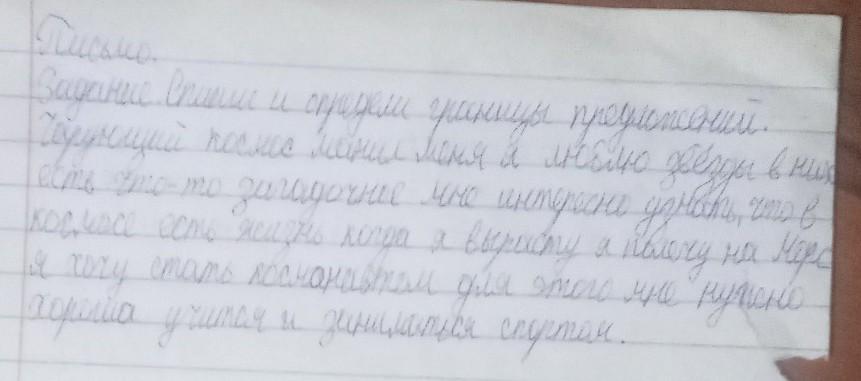 Письмо.
Задание Спиши и определи границы предложений.
Чарующий космос манил меня я люблю звёзды в них
есть что-то загадочное мне интересно узнать, что в
космосе есть жизнь когда я вырасту я полечу на Марс
я хочу стать космонавтом для этого мне нужно
хорошо учится и заниматься спортом.